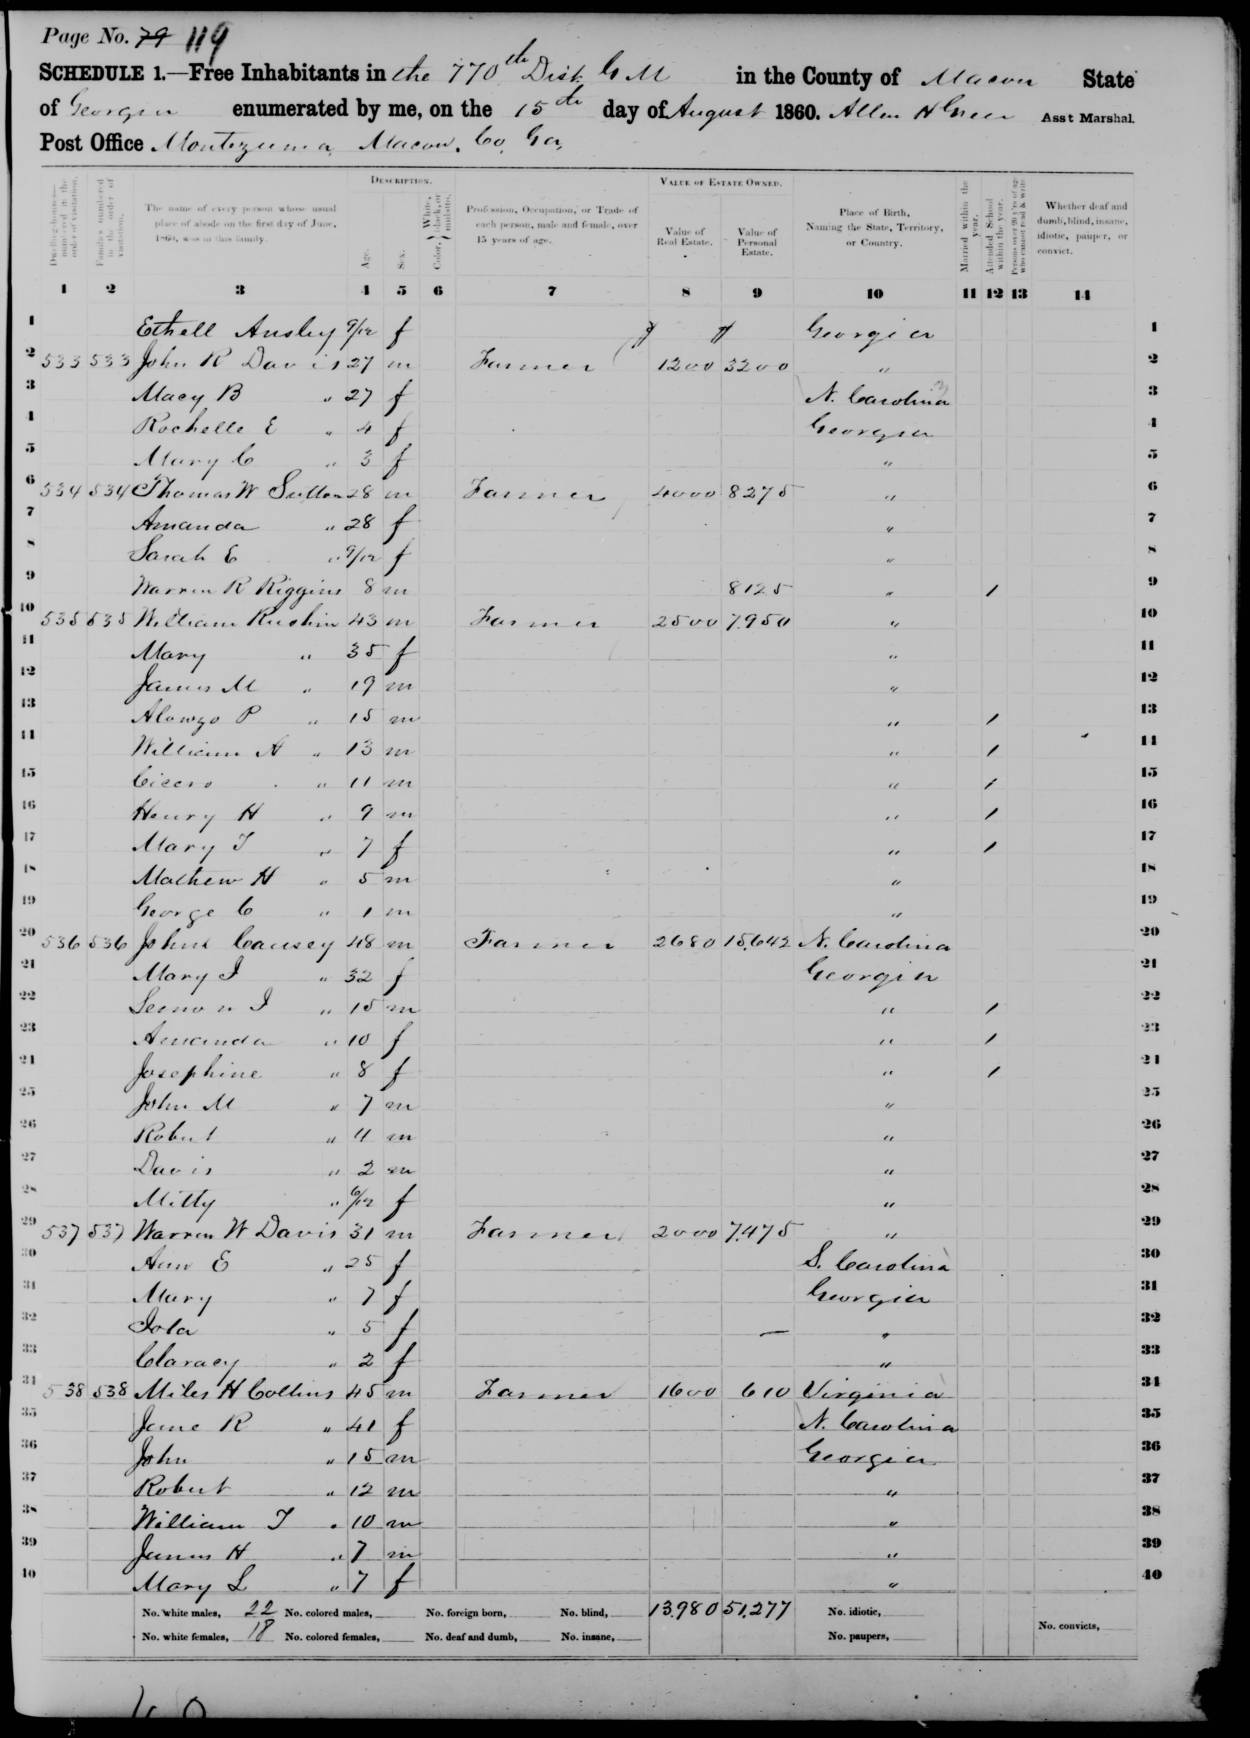 Page No. 79 119
SCHEDULE 1.—Free Inhabitants in the 770th Dist. G M in the County of Macon State
of Georgia enumerated by me, on the 15th day of August 1860. Allen H Greer Ass't Marshal.
Post Office Montezuma, Macon, Co, Ga,
DESCRIPTION. VALUE OF ESTATE OWNED.
Dwelling-houses—numbered in the order of visitation.
Families numbered in the order of visitation.
The name of every person whose usual place of abode on the first day of June, 1860, was in this family.
Age. Sex. Color, White, black, or mulatto.
Profession, Occupation, or Trade of each person, male and female, over 15 years of age.
Value of Real Estate. Value of Personal Estate.
Place of Birth, Naming the State, Territory, or Country.
Married within the year. Attended School within the year. Persons over 20 y'rs of age who cannot read & write.
Whether deaf and dumb, blind, insane, idiotic, pauper, or convict.
1 2 3 4 5 6 7 8 9 10 11 12 13 14
1 Ethell Ansley 9/12 f " " Georgia 1
2 533 533 John R Davis 27 m Farmer 1200 3200 " 2
3 Macy B " 27 f N. Carolina 3
4 Rochelle E " 4 f Georgia 4
5 Mary C " 3 f " 5
6 534 534 Thomas W Sutton 28 m Farmer 4000 8275 " 6
7 Amanda " 28 f " 7
8 Sarah E " 9/12 f " 8
9 Warren R Riggins 8 m 8125 " / 9
10 535 535 William Rushin 43 m Farmer 2500 7.950 " 10
11 Mary " 35 f " 11
12 James M " 19 m " 12
13 Alonzo P " 15 m " / 13
14 William A " 13 m " / 14
15 Cicero " 11 m " / 15
16 Henry H " 9 m " / 16
17 Mary T " 7 f " / 17
18 Mathew H " 5 m " 18
19 George C " 1 m " 19
20 536 536 John Causey 48 m Farmer 2680 15.642 N. Carolina 20
21 Mary J " 32 f Georgia 21
22 J " 15 m " / 22
23 Amanda " 10 f " / 23
24 Josephine " 8 f " / 24
25 John M " 7 m " 25
26 Robert " 4 m " 26
27 Davis " 2 m " 27
28 Mitty " 6/12 f " 28
29 537 537 Warren W Davis 31 m Farmer 2000 7.475 " 29
30 Ann E " 25 f S. Carolina 30
31 Mary " 7 f Georgia 31
32 Iola " 5 f — " 32
33 Claracy " 2 f " 33
34 538 538 Miles H Collins 45 m Farmer 1600 610 Virginia 34
35 Jane R " 41 f N. Carolina 35
36 John " 15 m Georgia 36
37 Robert " 12 m " 37
38 William T " 10 m " 38
39 James H " 7 m " 39
40 Mary L " 7 f " 40
No. white males, 22 No. colored males, No. foreign born, No. blind, 13.980 51.277 No. idiotic,
No. white females, 18 No. colored females, No. deaf and dumb, No. insane, No. paupers, No. convicts,